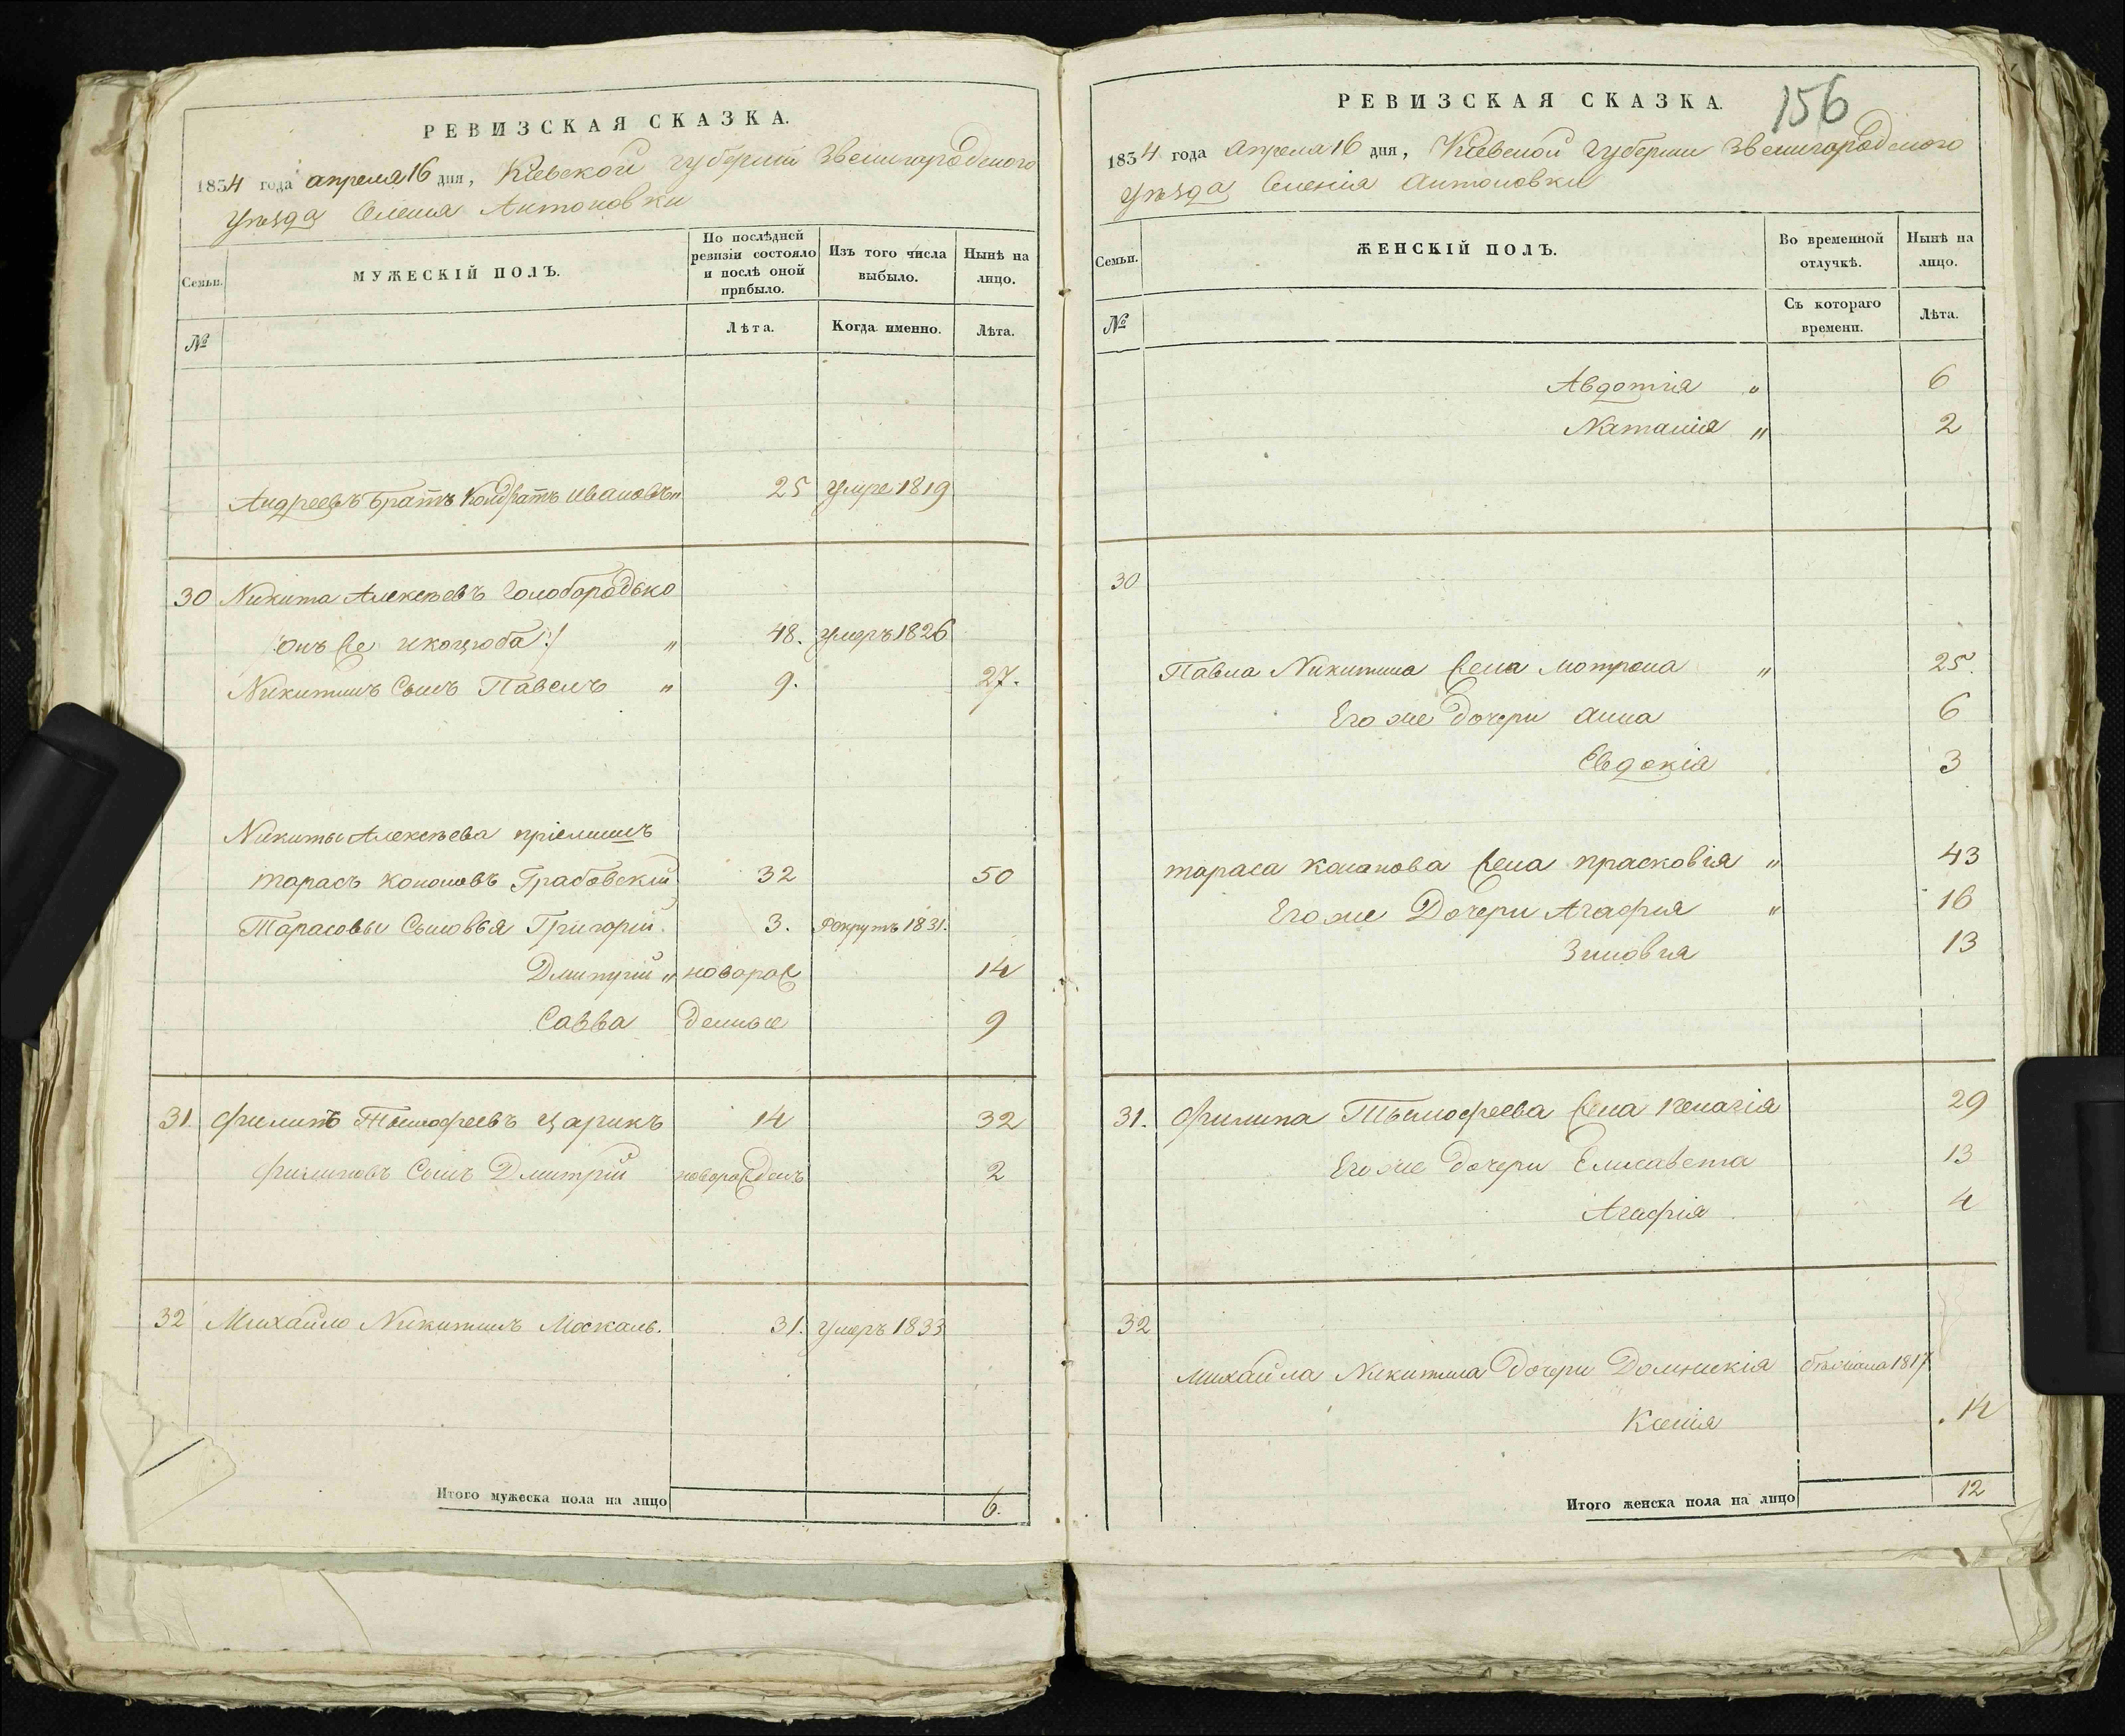 РЕВИЗСКАЯ СКАЗКА.
1834 года апреля 16 дня, Кіевской губерніи Звенигородского
уѣзда Селенія Антоновки
Семьи.
МУЖЕСКІЙ ПОЛЪ.
По послѣдней
ревизіи состояло
и послѣ оной
прибыло.
Изъ того числа
выбыло.
Нынѣ на
лицо.
№
Лѣта.
Когда именно.
Лѣта.
Андреевъ братъ Кондратъ Ивановъ „ 25 умре 1819
30 Никита Алексѣевъ Голобородько
/:онъ же и коцюба:/ „ 48. умеръ 1826
Никитинъ Сынъ Павелъ „ 9. 27.
Никиты Алексѣева пріемишъ
тарасъ кононовъ Грабовскій 32 50
Тарасовы Сыновья Григорій 3. рекрутъ 1831.
Дмитрій „ новорож 14
Савва денные 9
31. Филипъ Тимофеевъ Царикъ 14 32
Филиповъ Сынъ Дмитрій новорожденъ 2
32 Михайло Никитинъ Москаль. 31. умеръ 1833
Итого мужеска пола на лицо 6.
РЕВИЗСКАЯ СКАЗКА.
156
1834 года Апреля 16 дня, Кіевской Губерніи Звенигородского
Уѣзда Селенія Антоновки
Семьи.
ЖЕНСКІЙ ПОЛЪ.
Во временной
отлучкѣ.
Нынѣ на
лицо.
№
Съ котораго
времени.
Лѣта.
Авдотія „ 6
Наталія „ 2
30
Павла Никитина жена мотрона „ 25.
Его же дочери анна 6
Евдокія 3
тараса кононова жена прасковія „ 43
Его же Дочери Агафия „ 16
Зиновия 13
31. Филипа Тимофеева жена пелагія 29
Его же дочери Елисавета 13
Агафія 4
32
михайла Никитина Дочери Домникія бѣжала 1817
Ксенія 14
Итого женска пола на лицо 12